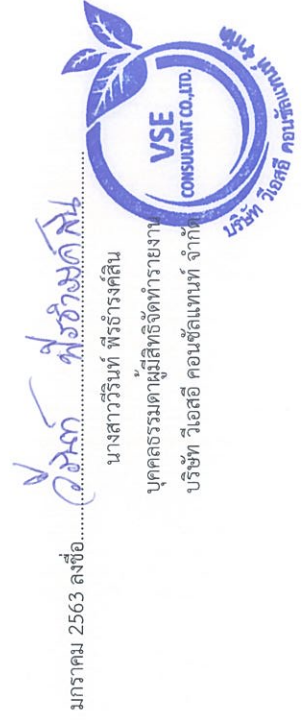 มกราคม 2563 ลงชื่อ
นางสาววีรินท์ พีรธำรงค์สิน
บุคคลธรรมดาผู้มีสิทธิจัดทำรายงาน
บริษัท วีเอสอี คอนซัลแทนท์ จำกัด
VSE
CONSULTANT CO.,LTD.
บริษัท วีเอสอี คอนซัลแทนท์ จำกัด